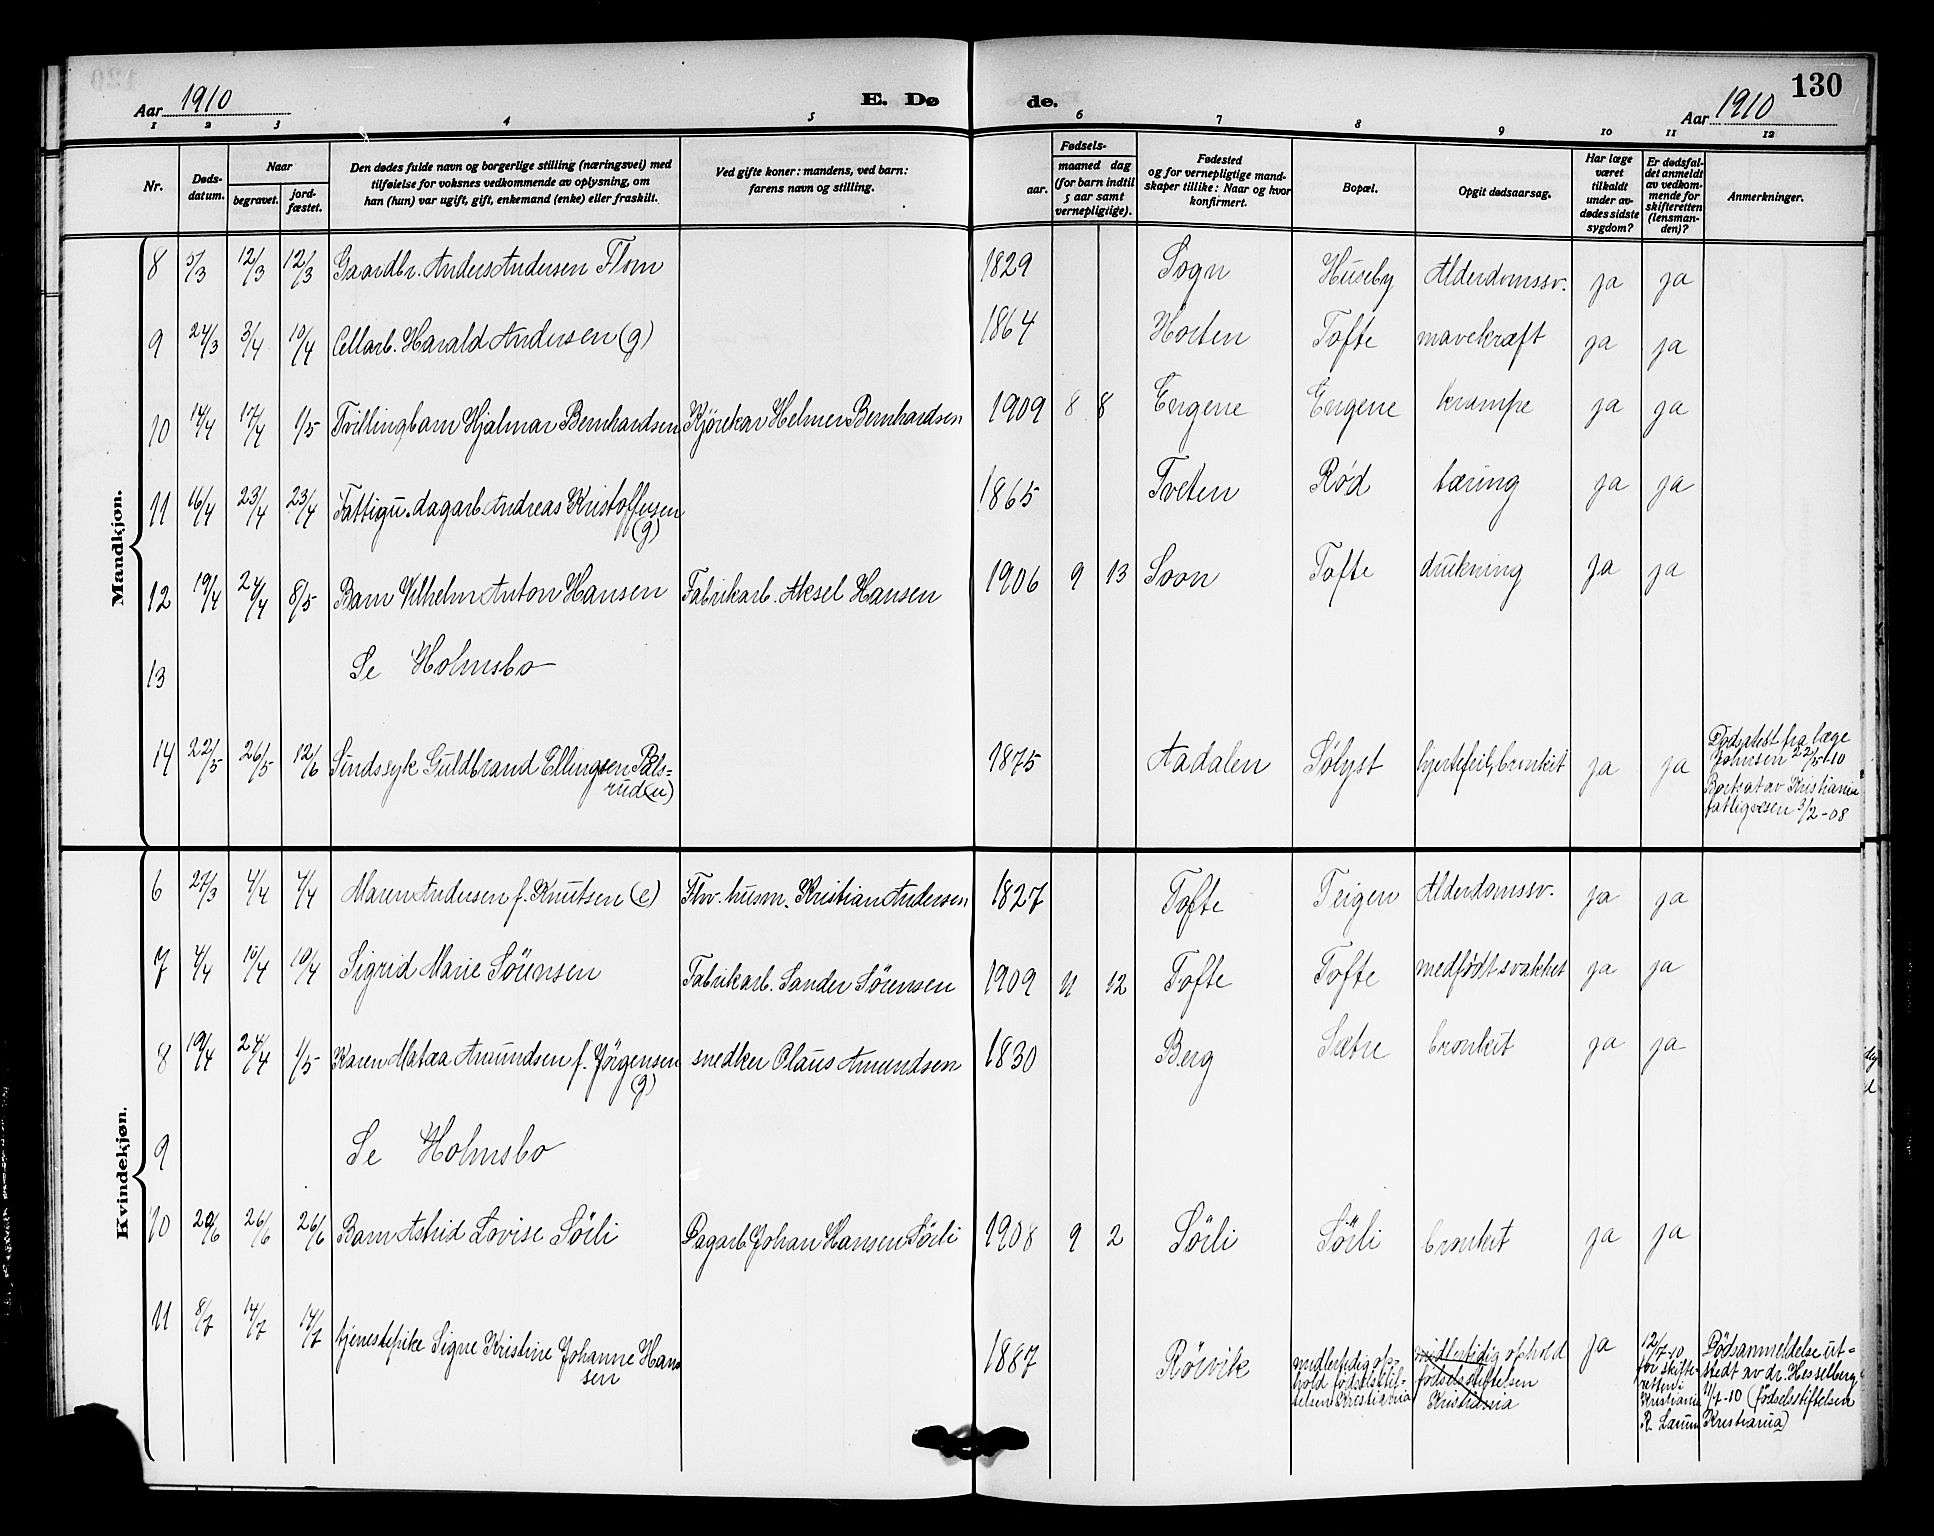 130
Aar 1910
E. Døde.
Aar 1910
1 2 3 4 5 6 7 8 9 10 11 12
Nr.
Døds-
datum.
Naar
begravet.
jord-
fæstet.
Den dødes fulde navn og borgerlige stilling (næringsvei) med
tilføielse for voksnes vedkommende av oplysning, om
han (hun) var ugift, gift, enkemand (enke) eller fraskilt.
Ved gifte koner: mandens, ved barn:
farens navn og stilling.
Fødsels-
aar.
maaned dag
(for barn indtil
5 aar samt
vernepligtige).
Fødested
og for vernepligtige mand-
skaper tillike: Naar og hvor
konfirmert.
Bopæl.
Opgit dødsaarsag.
Har læge
været
tilkaldt
under av-
dødes sidste
sygdom?
Er dødsfal-
det anmeldt
av vedkom-
mende for
skifteretten
(lensman-
den)?
Anmerkninger.
Mandkjøn.
8 5/3 12/3 12/3 Gaardbr. Anders Andersen Flom 1829 Sogn Huseby Alderdomssv. ja ja
9 24/3 3/4 10/4 Cellarb. Harald Andersen (g) 1864 Horten Tofte mavekræft ja ja
10 14/4 17/4 1/5 Tvillingbarn Hjalmar Bernhardsen Kjørekar Helmer Bernhardsen 1909 8 8 Engene Engene krampe ja ja
11 16/4 23/4 23/4 Fattigu. dagarb. Andreas Kristoffersen 1865 Tveten Rød tæring ja ja
(g)
12 19/4 24/4 8/5 Barn Vilhelm Anton Hansen Fabrikarb. Aksel Hansen 1906 9 13 Soon Tofte drukning ja ja
13 Se Holmsbo
14 22/5 26/5 12/6 Sindssyk Guldbrand Ellingsen Pæls- 1875 Aadalen Sølyst hjertefeil, bronkit ja ja Dødsatest fra læge
rud (u) Johnsen 22/5-10
Bortsat av Kristiania
fattigvesen 3/2-08
Kvindekjøn.
6 27/3 4/4 4/4 Maren Andersen f. Knutsen (e) Fhv. husm. Kristian Andersen 1827 Tofte Teigen Alderdomssv. ja ja
7 4/4 10/4 10/4 Sigrid Marie Sörensen Fabrikarb. Sander Sörensen 1909 11 12 Tofte Tofte medfödt svakhet ja ja
8 19/4 24/4 1/5 Karen Matea Amundsen f. Jörgensen snedker Olaus Amundsen 1830 Berg Sætre bronkit ja ja
(g)
9 Se Holmsbo
10 20/6 26/6 26/6 Barn Astrid Lovise Sörli Dagarb. Johan Hansen Sörli 1908 9 2 Sörli Sörli bronkit ja ja
11 8/7 14/7 14/7 tjenestepike Signe Kristine Johanne Han- 1887 Rörvik midlertidig op- midlertidig ophold ja 12/7-10 Dödsanmeldelse ut-
sen hold fødselsstif- fødselsstiftelsen for skifte- stedt av dr. Hesselberg
telsen Kristiania Kristiania retten i 11/7-10 (födselsstiftelsen
Kristiania Kristiania)